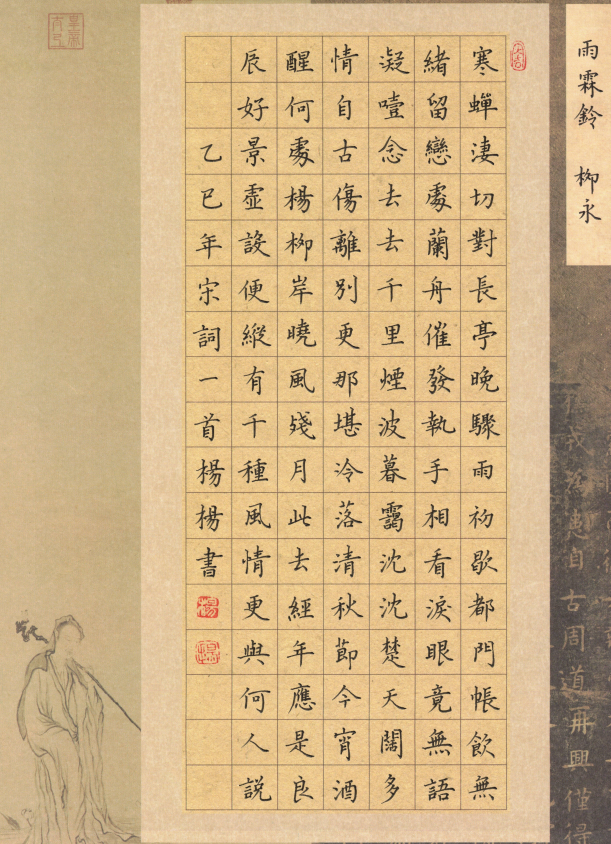 雨霖鈴 柳永
寒蟬淒切對長亭晚驟雨初歇都門帳飲無
緒留戀處蘭舟催發執手相看淚眼竟無語
凝噎念去去千里煙波暮靄沈沈楚天闊多
情自古傷離別更那堪冷落清秋節今宵酒
醒何處楊柳岸曉風殘月此去經年應是良
辰好景虛設便縱有千種風情更與何人說
乙巳年宋詞一首楊楊書